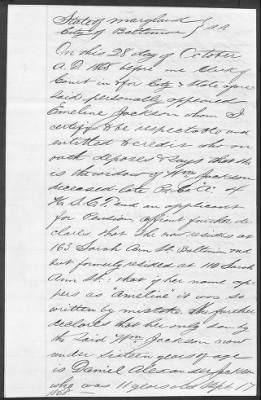 State of Maryland
City of Baltimore } SS
On this 28 day of October
A.D. 1865 before me Clerk of
Court in & for City & State afore
said personally appeared
Emeline Jackson whom I
certify to be respectable and
entitled to credit who on
oath deposes & says that she
is the widow of Wm Jackson
deceased late Co. "A" 4
U.S.C.T. and an applicant
for Pension & further de
clares that she now resides at
163 Sarah Ann St. Baltimore and
but formerly resided at 114 Sarah
Ann St.: that if her name ap
pears as "Ameline" it was so
written by mistake. She further
declares that her only son by
the said Wm. Jackson now
under sixteen years of age
is Daniel Alexander Jackson
who was 11 years old Sept. 17
1865